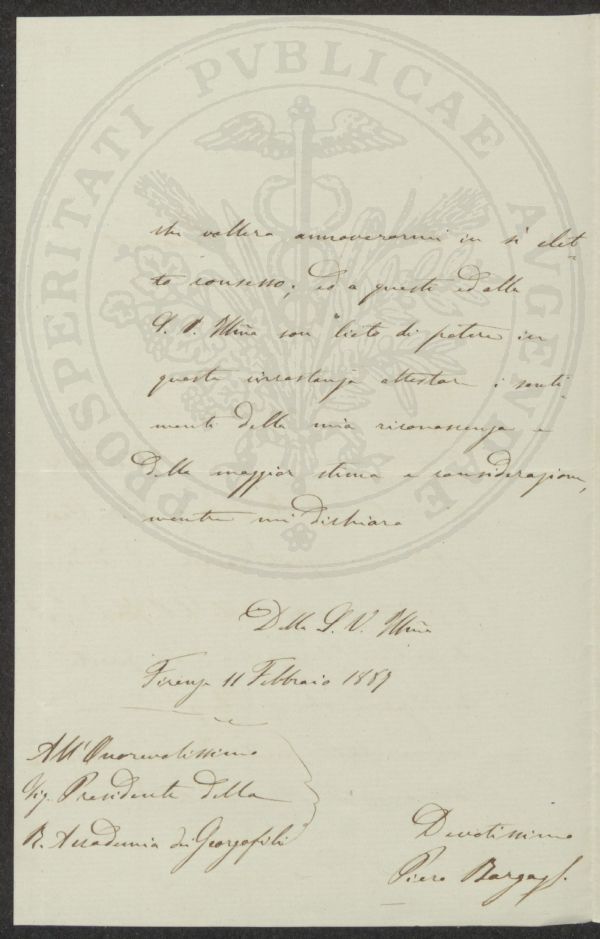 PROSPERITATI PVBLICAE AVGENDAE
che vollero annoverarmi in sì elet-
to consesso; ed a questi ed alla
S. V. Illma son lieto di potere in
questa circostanza attestare i senti-
menti della mia riconoscenza e
della maggior stima e considerazione,
mentre mi dichiaro
Della S. V. Illma
Firenze 11 Febbraio 1889
All'Onorevolissimo
Sig. Presidente della
R. Accademia dei Georgofili
Devotissimo
Piero Bargagli